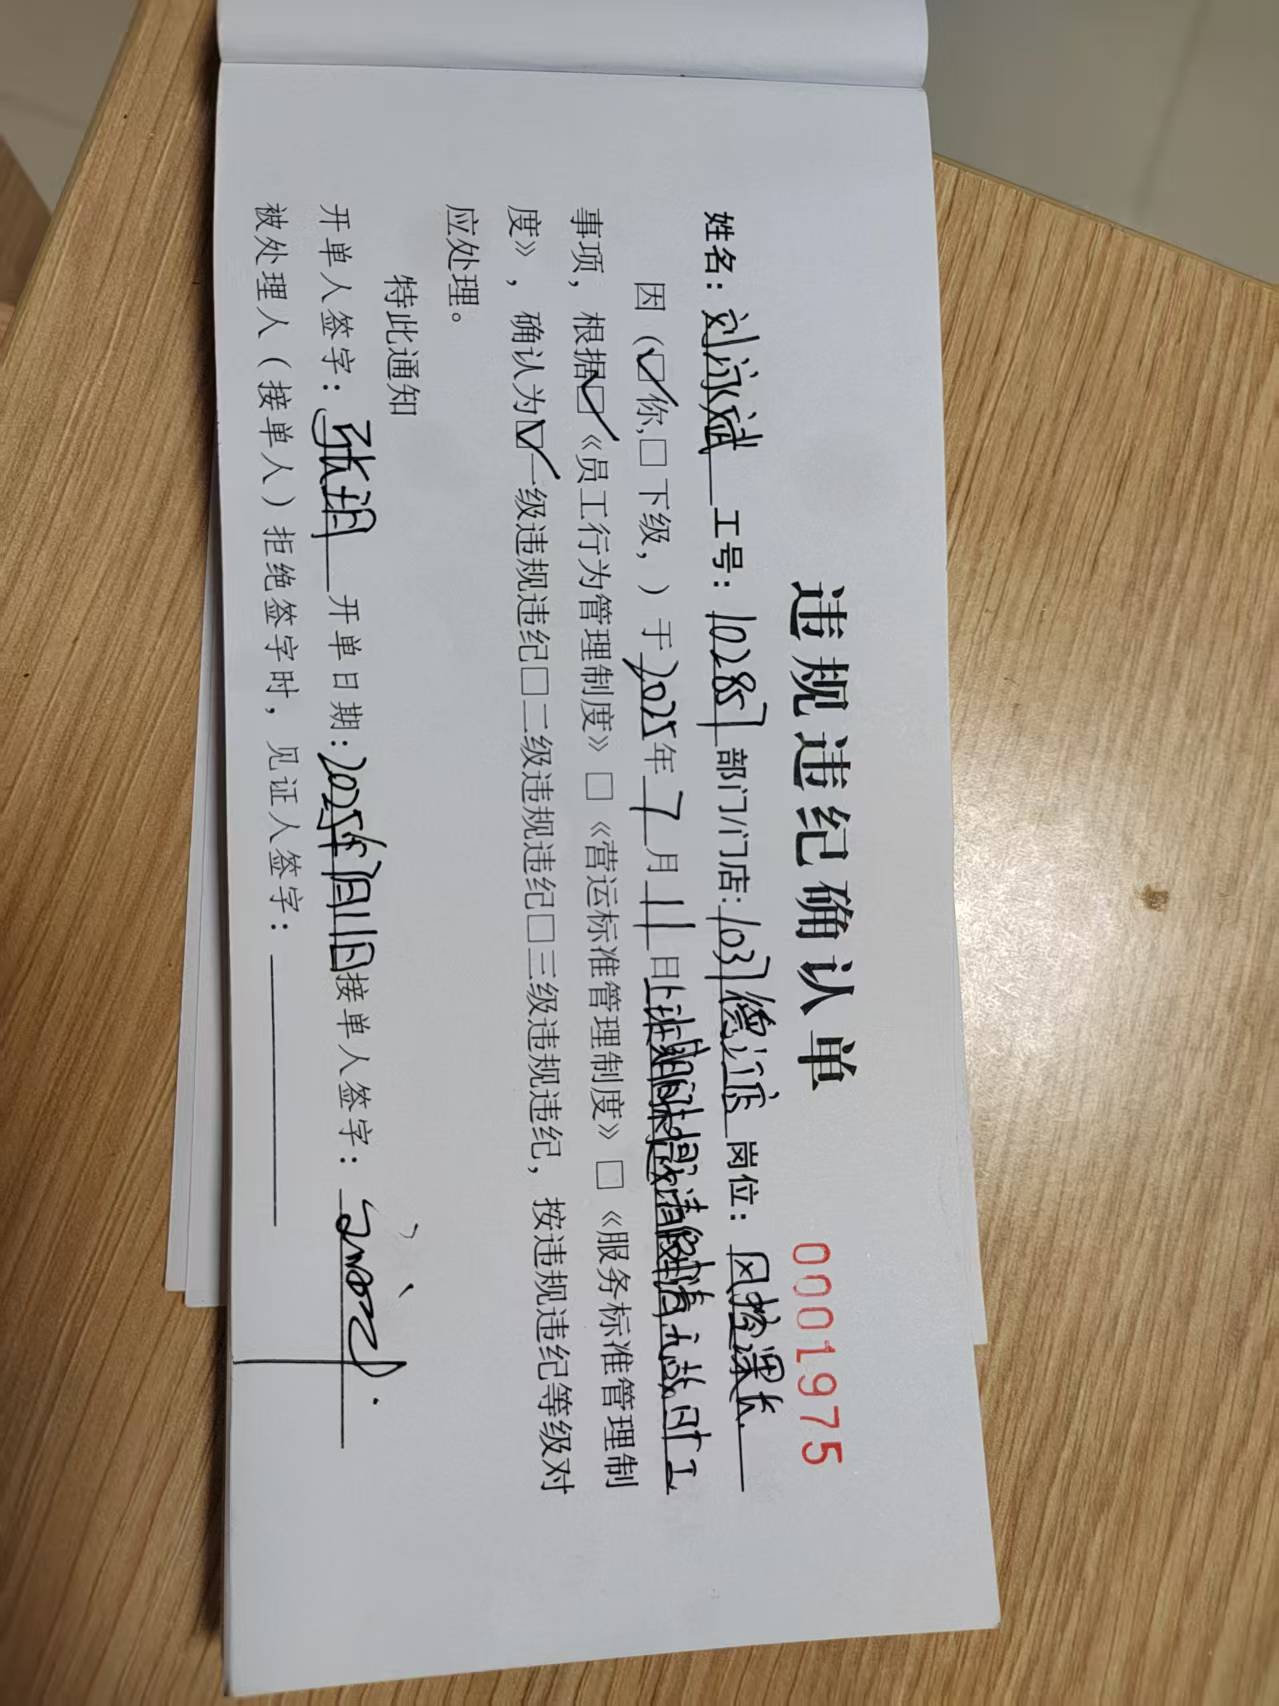 违规违纪确认单 0001975
姓名：刘泳斌 工号：10287 部门/门店：1037德 店 岗位：风控课长
因（☑你，□下级，）于2025年7月11日上班期间
事项，根据☑《员工行为管理制度》□《营运标准管理制度》□《服务标准管理制
度》，确认为☑一级违规违纪□二级违规违纪□三级违规违纪，按违规违纪等级对
应处理。
特此通知
开单人签字：张玥 开单日期：2025年7月11日接单人签字：
被处理人（接单人）拒绝签字时，见证人签字：